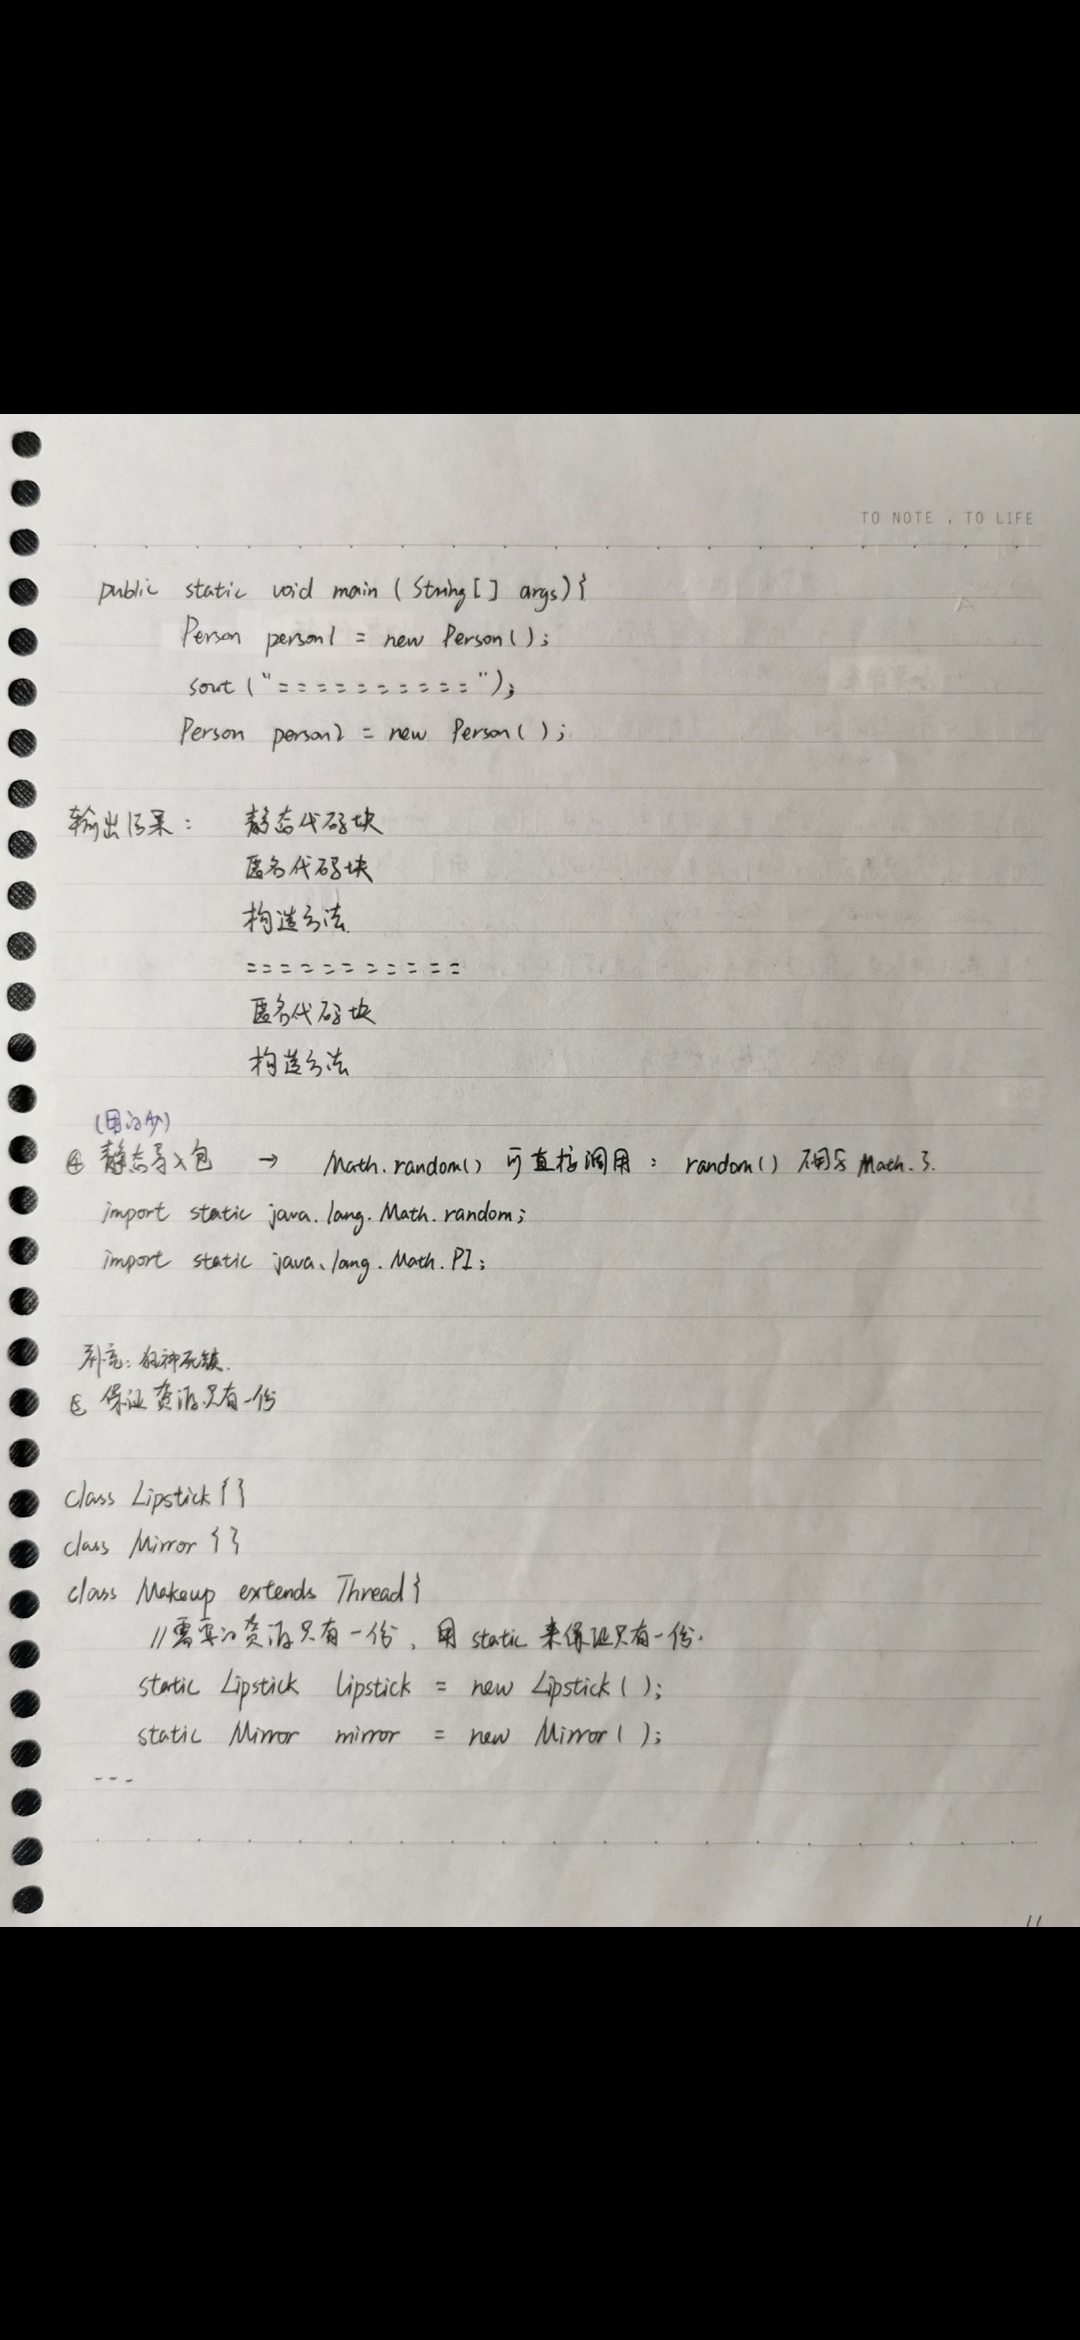 TO NOTE , TO LIFE
public static void main ( String [ ] args) {
Person person1 = new Person ( );
sout ( "===========");
Person person2 = new Person ( );
输出结果: 静态代码块
匿名代码块
构造方法
===========
匿名代码块
构造方法
(用的少)
④ 静态导入包 → Math.random() 可直接调用: random() 不用写 Math. 了.
import static java.lang.Math.random;
import static java.lang.Math.PI;
补充: 狂神死锁.
⑤ 保证资源只有一份
class Lipstick { }
class Mirror { }
class Makeup extends Thread {
//需要的资源只有一份, 用 static 来保证只有一份.
static Lipstick lipstick = new Lipstick ( );
static Mirror mirror = new Mirror ( );
---
11